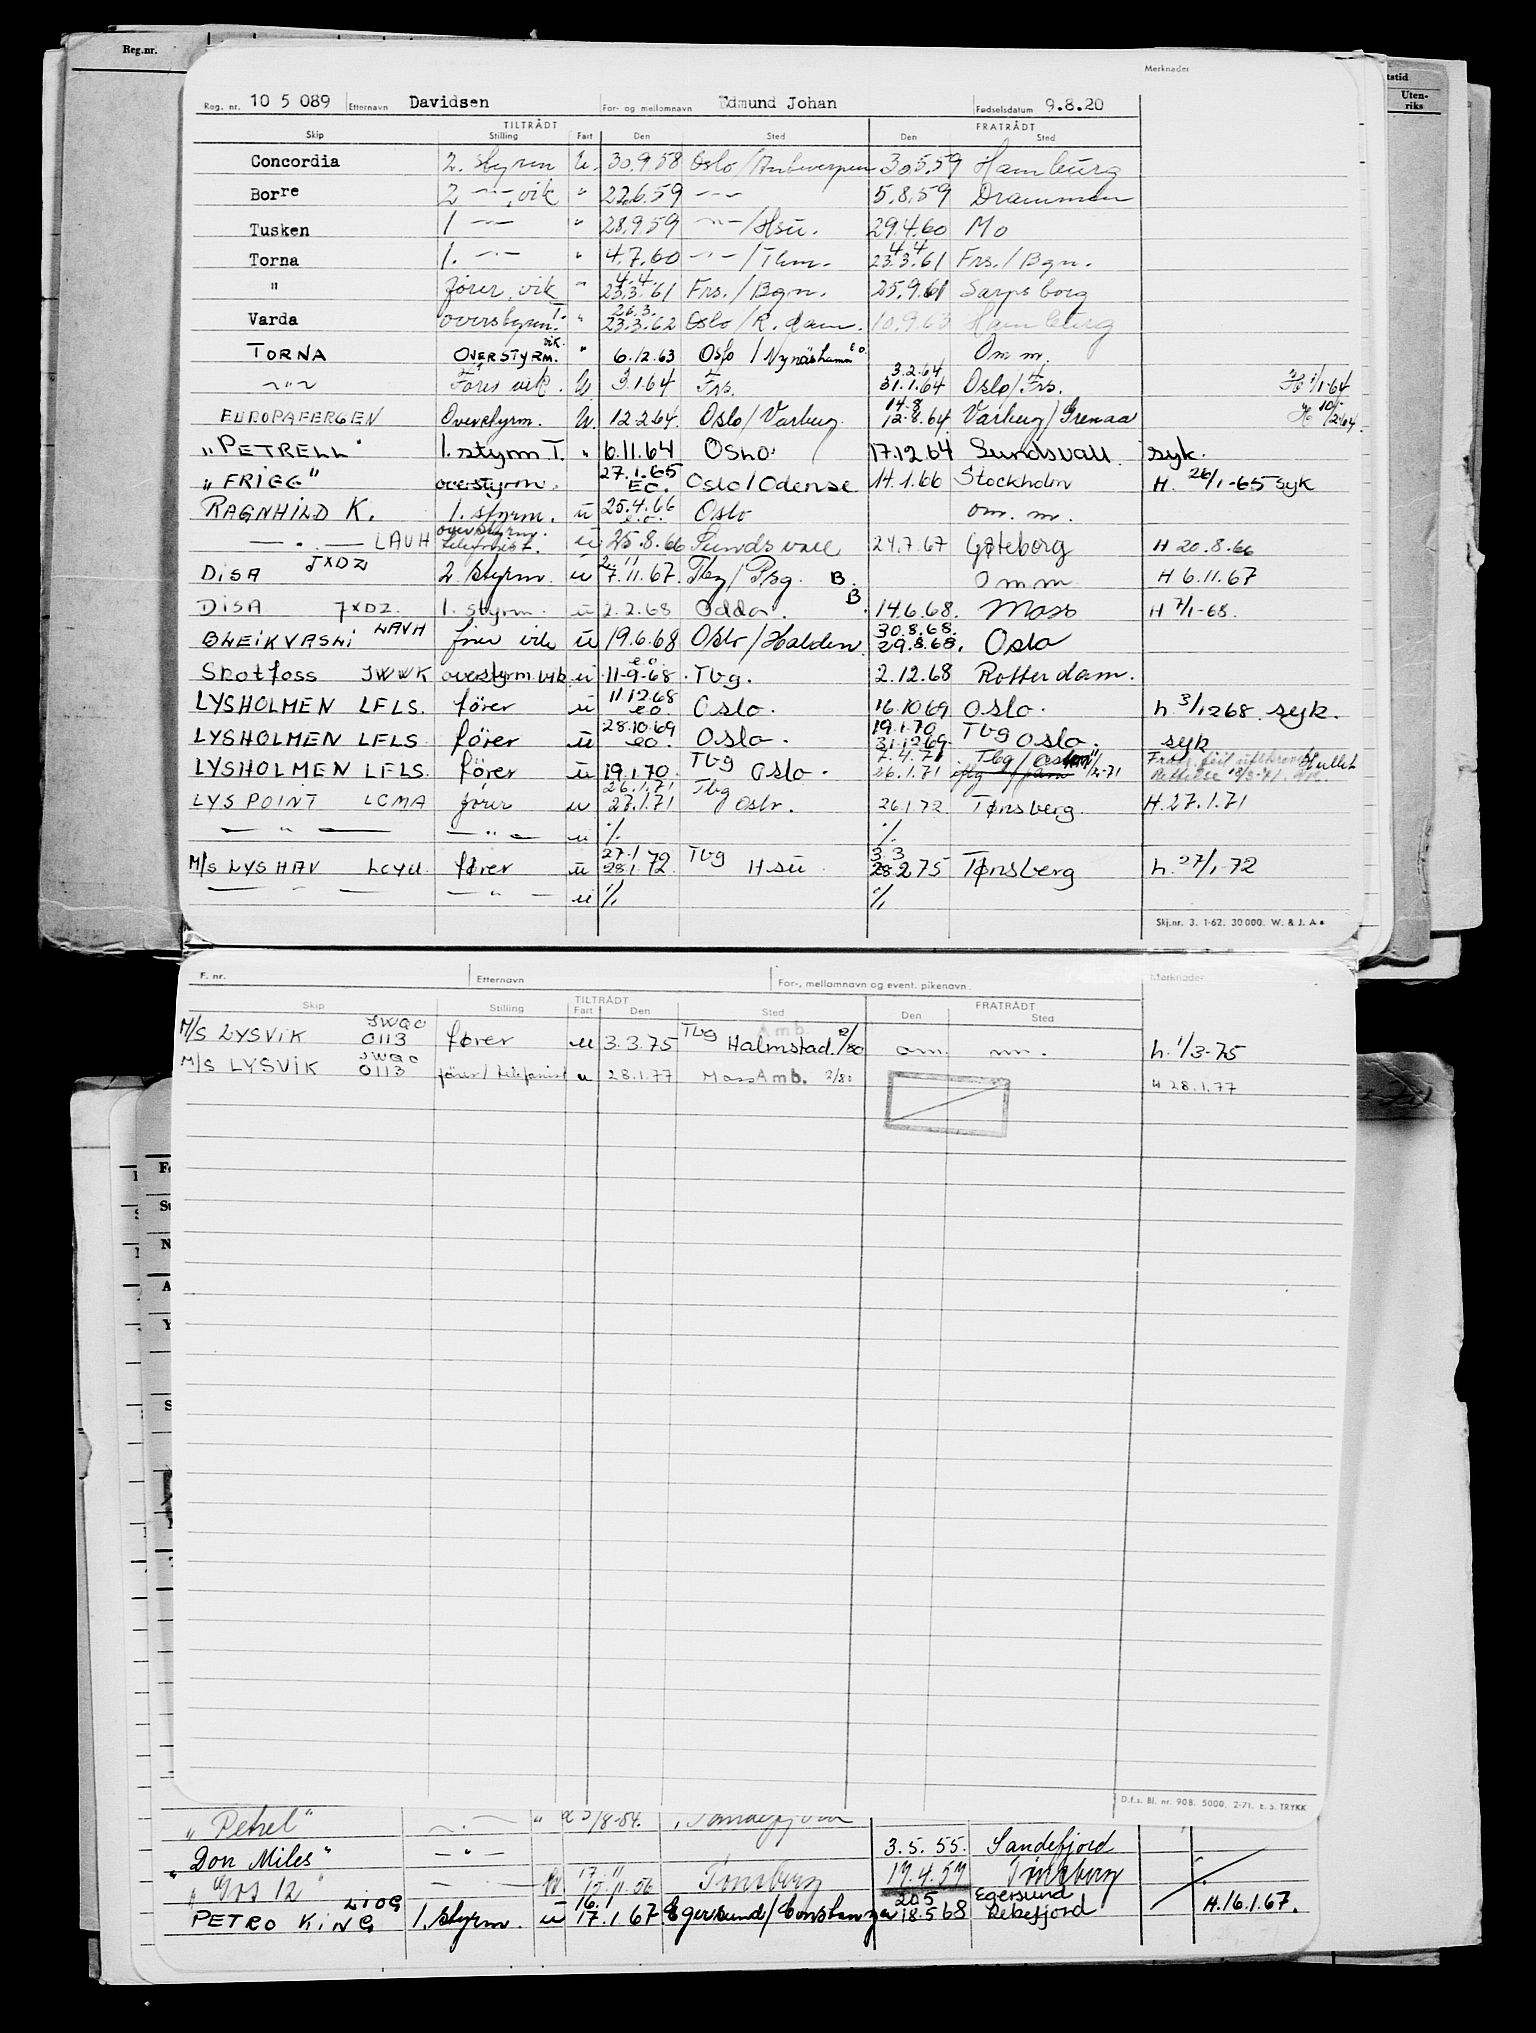 Reg.nr.
Merknader
Uten-
riks
Reg. nr. 10 5 089 Etternavn Davidsen For- og mellomnavn Edmund Johan Fødselsdatum 9.8.20
TILTRÅDT FRATRÅDT
Skip Stilling Fart Den Sted Den Sted
Concordia 2. styrm U. 30.9.58 Oslo/Antwerpen 30.5.59 Hamburg
Borre 2 -"- vik " 22.6.59 -"- 5.8.59 Drammen
Tusken 1 -"- " 28.9.59 -"-/Hsu. 29.4.60 Mo
Torna 1. -"- " 4.7.60 -"-/Thm. 4.4 23.3.61 Frs./Bgn.
" fører vik " 4.4. 23.3.61 Frs./Bgn. 25.9.61 Sarpsborg
Varda overstyrm. T. " 26.3. 23.3.62 Oslo/R.dam. 10.9.63 Hamburg
TORNA OVERSTYRM. vik. " 6.12.63 Oslo/Nynäshamn e.o. Om m.
-"- Fører vik. U 3.1.64 Frs. 3.2.64 31.1.64 Oslo/Frs. H 1/1-64
EUROPAFERGEN Overstyrm. U. 12.2.64. Oslo/Varberg. 14.8 12.8.64. Varberg/Grenaa H 10/2-64
"PETRELL" 1. styrm T. " 6.11.64 OSLO. 17.12.64 Sundsvall. syk.
"FRIGG" overstyrm. 27.1.65 E.O. Oslo/Odense 14.1.66 Stockholm H. 26/1-65 syk
RAGNHILD K. 1. styrm. u 25.4.66 e.o. Oslo om. m.
— " — LAVH overstyrm. telefonist. u 25.8.66 Sundsvall 24.7.67 Gøteborg H 20.8.66
DISA JXDZ 2 styrm. u 7.11.67. Tbg/Psg. B. Omm H 6.11.67
DISA JXDZ. 1. styrm. u 2.2.68 Odda. B. 14.6.68. Moss H 7/1-68.
BLEIKVASLI LAVH fører vik u 19.6.68 Oslo/Halden 30.8.68. 29.8.68. Oslo
Skotfoss JWWK overstyrm.vik u 11-9-68 e.o. Tbg. 2.12.68 Rotterdam.
LYSHOLMEN LFLS. fører u 11.12.68 e.o. Oslo. 16.10.69 Oslo. h. 3/12 68 syk.
LYSHOLMEN LFLS fører u 28.10.69 e.o. Oslo. 19.1.70 31.12.69. Tbg Oslo. syk
LYSHOLMEN LFLS. fører u 19.1.70. Tbg Oslo. 7.4.71 26.1.71
LYS POINT LCMA fører u 26.1.71 27.1.71 Tbg Oslo. 26.1.72 Tønsberg H. 27.1.71
— " — — " — u % %
M/S LYSHAV LCYU fører u 27.1 28.1.72. Tbg Hsu 3.3 28.2.75 Tønsberg h. 27/1-72
— " — — " — u % %
Skj.nr. 3. 1-62. 30 000. W. & J. A.
F. nr. Etternavn For-, mellomnavn og event. pikenavn. Merknader
TILTRÅDT FRATRÅDT
Skip Stilling Fart Den Sted Den Sted
M/S LYSVIK JWQO 0113 fører u 3.3.75 Tbg Halmstad. Amb. 2/80 om. m. h. 1/3-75
M/S LYSVIK JWQO 0113 fører/telefonist u 28.1.77 Moss Amb. 2/80 H 28.1.77
D.f.s. Bl. nr. 90B. 5000. 2-71. E.S. TRYKK
"Petrel" -"- " /8-54. Sandefjord
"Don Miles" -"- 3.5.55. Sandefjord
12" U 17.11 Tønsberg 17.4.57 Tønsberg
PETRO KING LIOG 1. styrm. u 16.1 17.1.67 Egersund/Constanza 20.5 18.5.68 Egersund Rekefjord H.16.1.67.